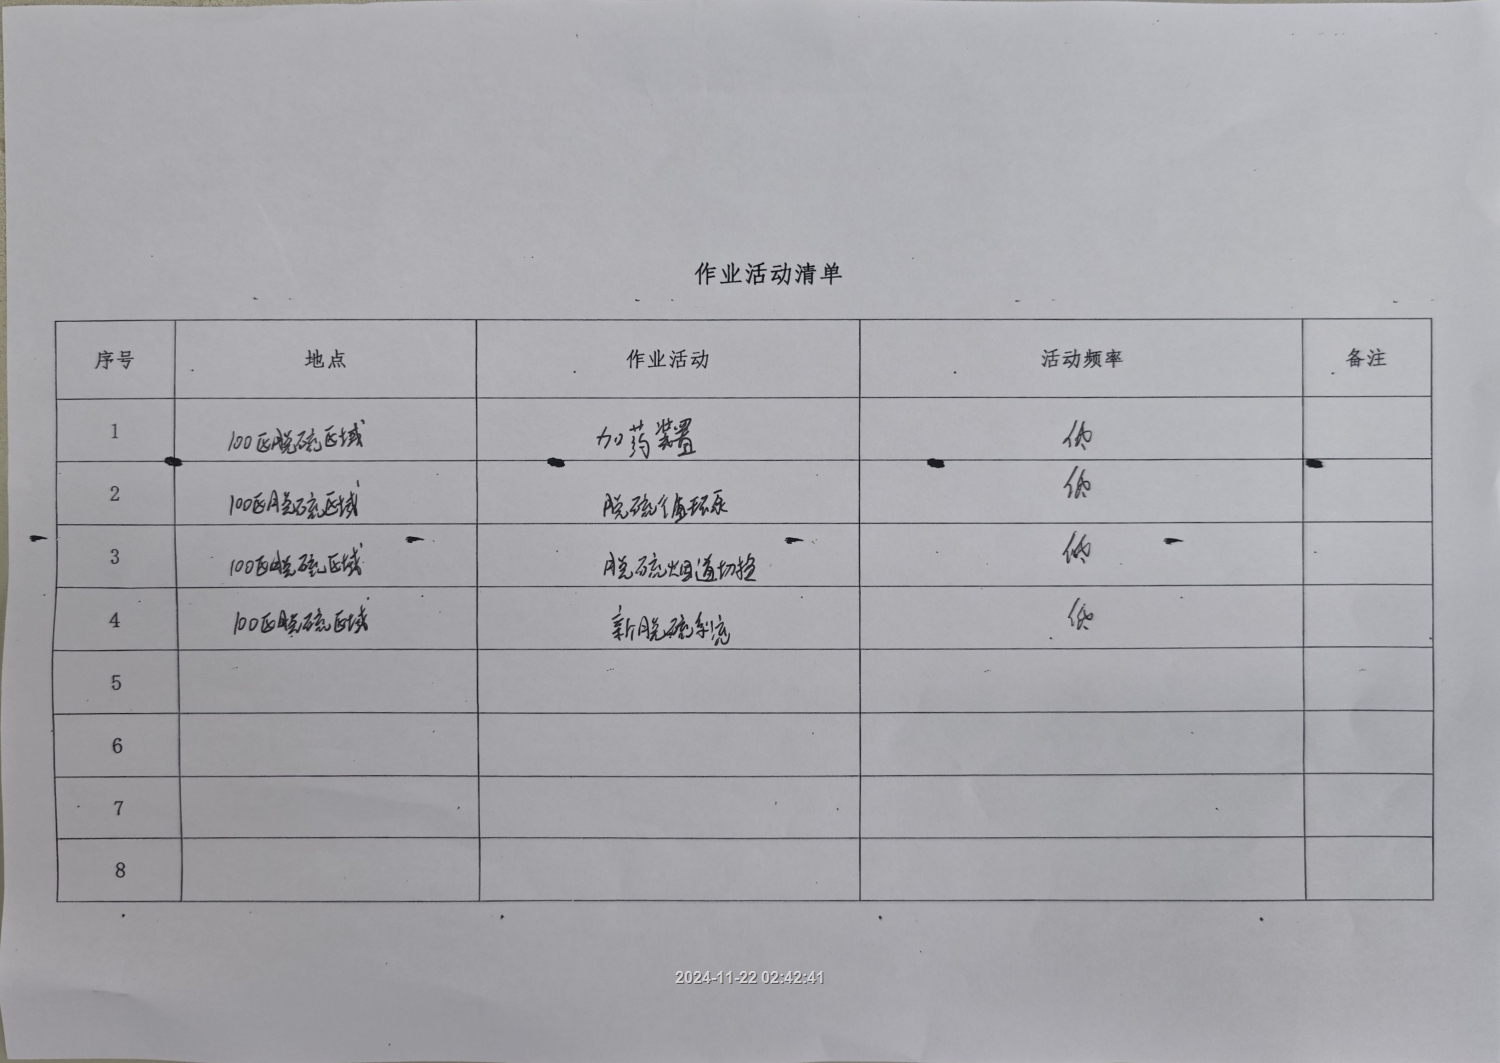 作业活动清单
序号 地点 作业活动 活动频率 备注
1 100区脱硫区域 加药装置 低
2 100区脱硫区域 脱硫循环泵 低
3 100区脱硫区域 脱硫烟道切换 低
4 100区脱硫区域 新脱硫系统 低
5
6
7
8
2024-11-22 02:42:41